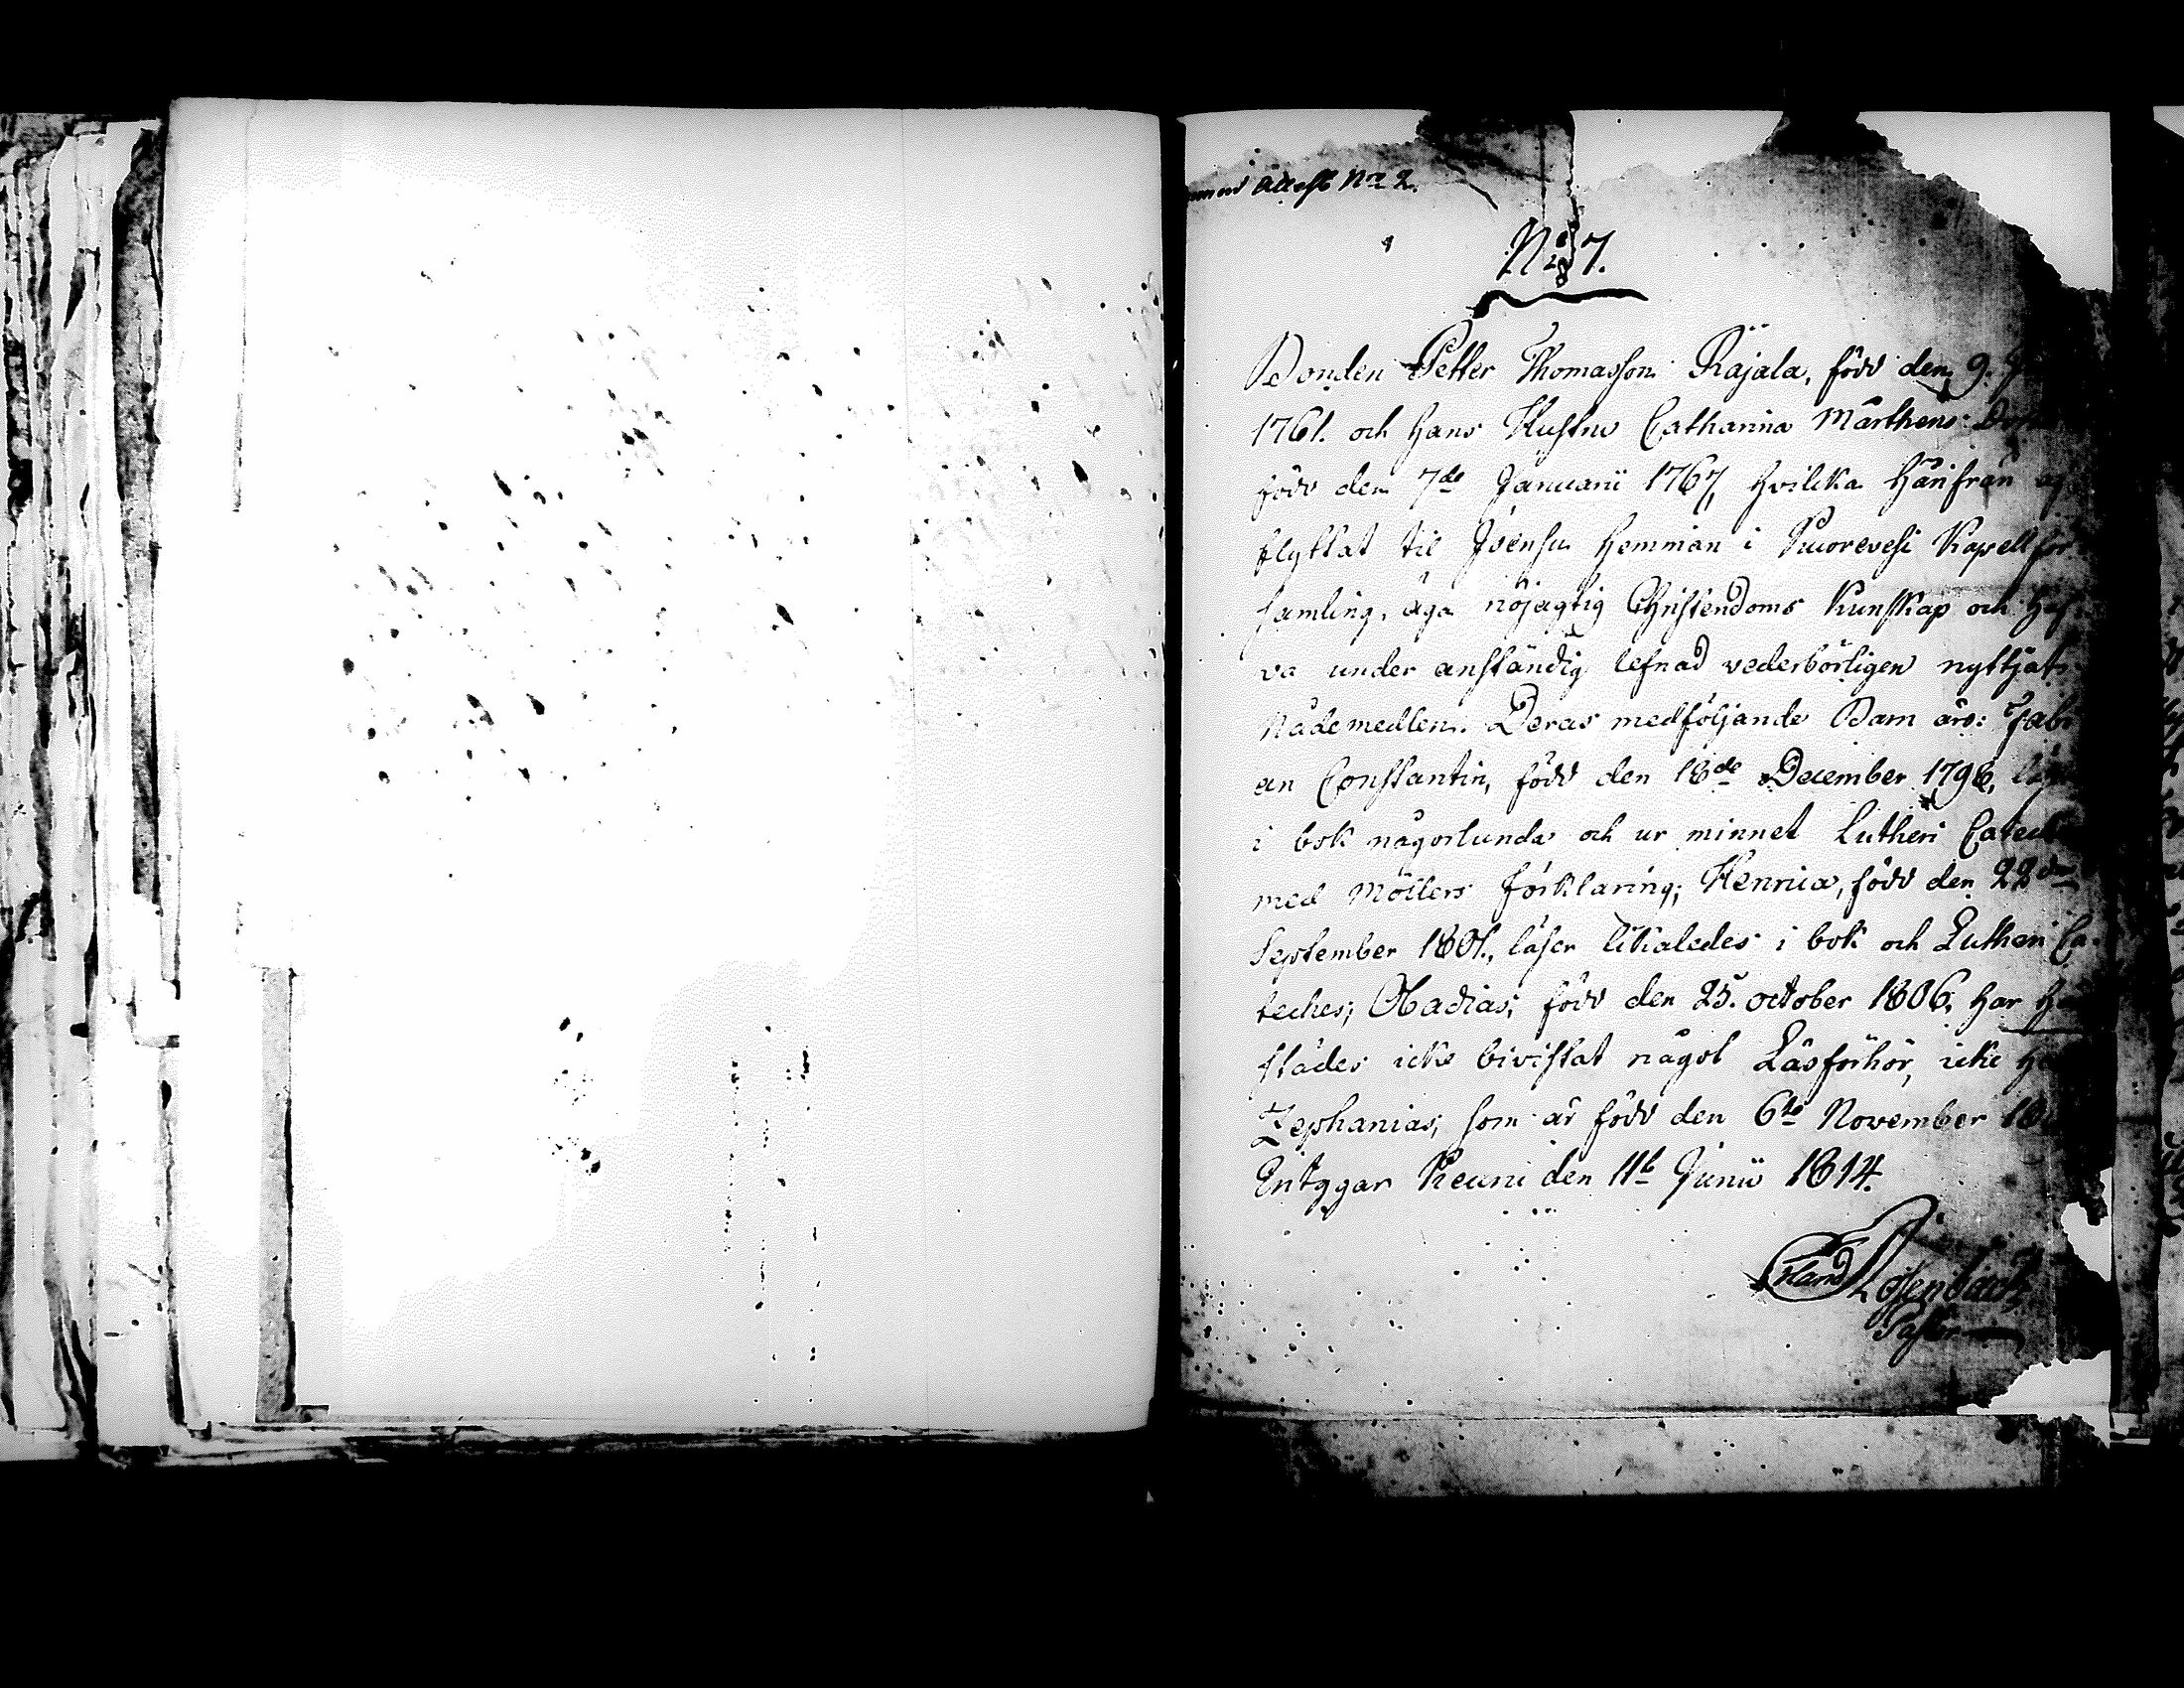 Attest No 2.
No 7.
Bonden Petter Thomasson Rajala, född den 9.
1761. och hans Hustru Catharina Mårthens
född den 7de Januarii 1767, hvilka härifrån
flyttat til Joensu hemman i Kuorevesi Kapellför
samling, äga nöjagtig Christendoms Kunskap och haf
va under anständig lefnad vederbörligen nyttjat
Nådemedlen. Deras medföljande Barn äro: Fabi
an Constantin, född den 18de December 1798,
i bok någorlunda och ur minnet Lutheri Catech
med Möllers förklaring; Henrica, född den 22dra
September 1801., läser likaledes i bok och Lutheri Ca-
teches; Obadias, född den 25. october 1806, har
städes icke bivistat något Läsförhör, icke
Zephanias, som är född den 6te November
Intygar Keuru den 11te Junii 1814.
Erland Rosenback
Pastor